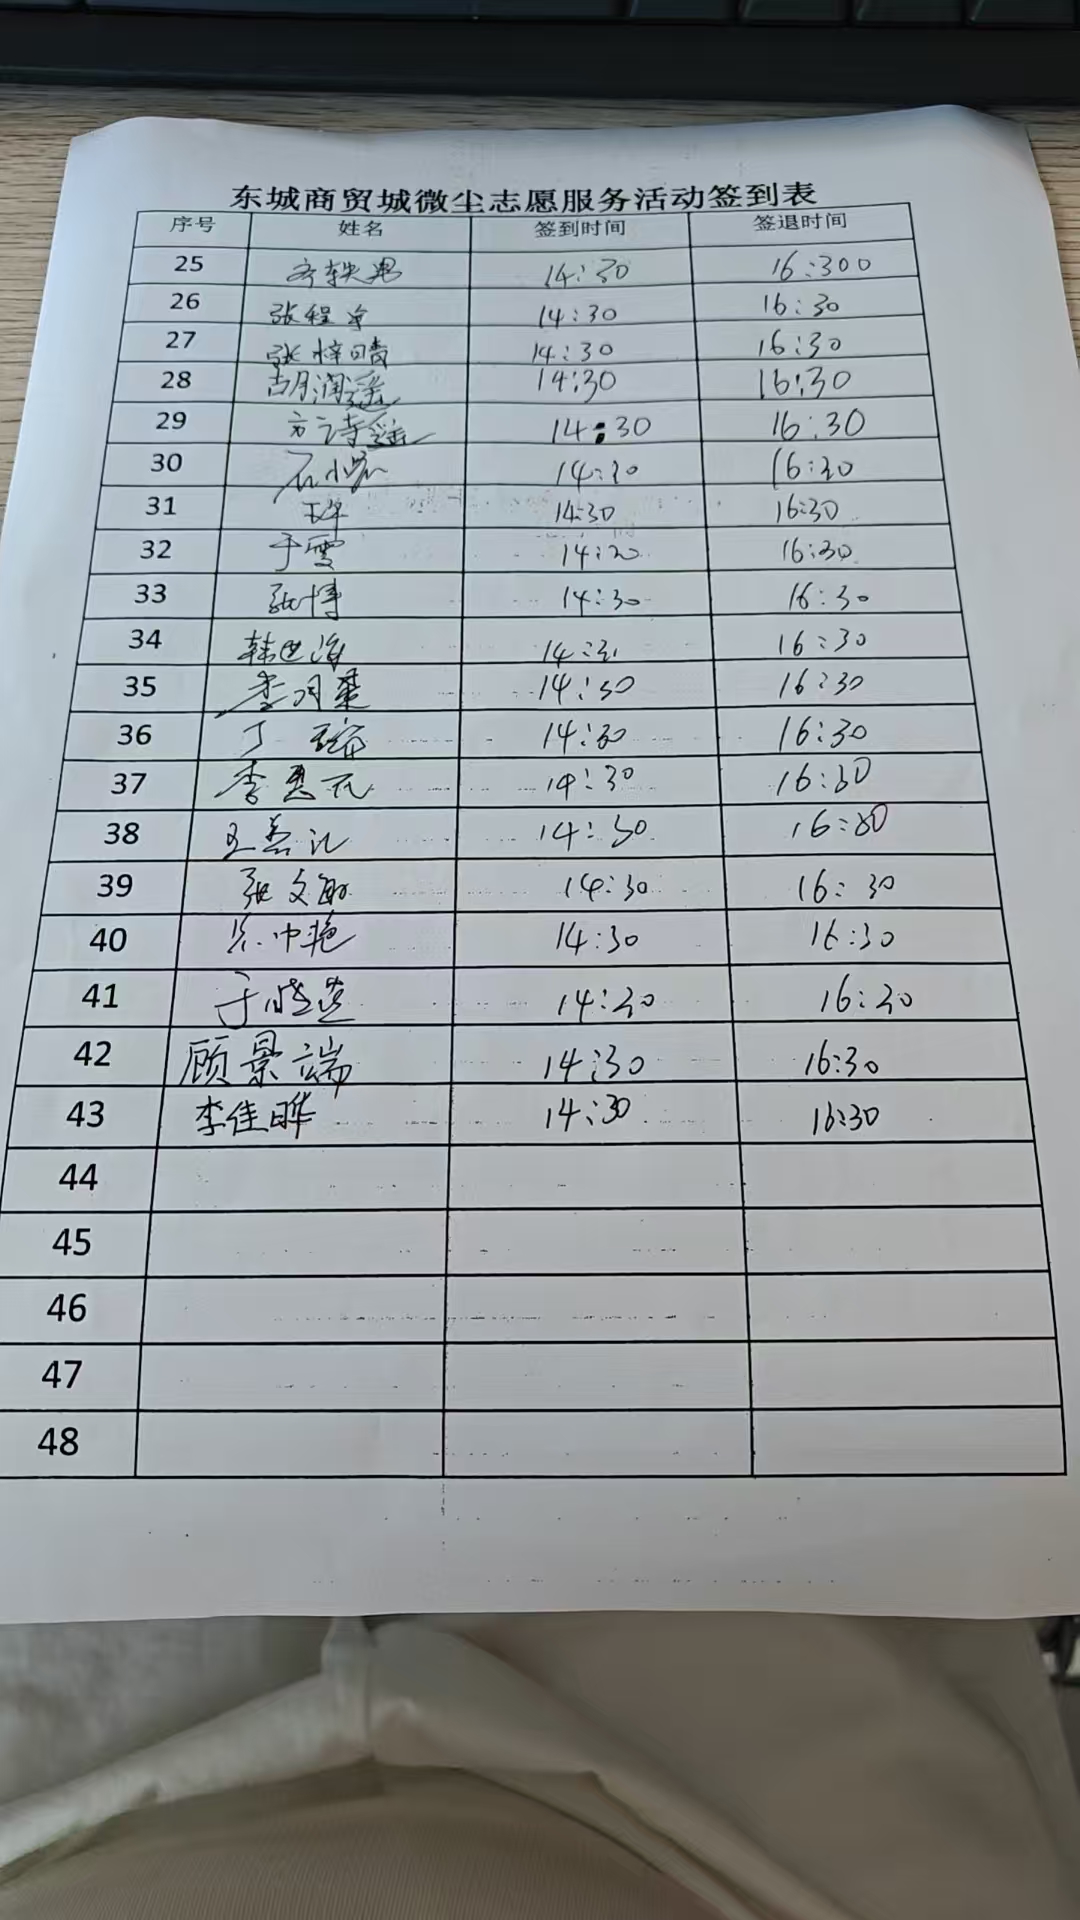 东城商贸城微尘志愿服务活动签到表
序号 姓名 签到时间 签退时间
25 14:30 16:300
26 张程 14:30 16:30
27 张梓晴 14:30 16:30
28 胡润瑶 14:30 16:30
29 方诗瑶 14:30 16:30
30 石小宏 14:30 16:30
31 14:30 16:30
32 于雪 14:20 16:30
33 张博 14:30 16:30
34 韩世海 16:30
35 李月 14:30 16:30
36 丁 14:30 16:30
37 李惠 14:30 16:30
38 王 14:30 16:30
39 张文敏 14:30 16:30
40 中艳 14:30 16:30
41 于晓莲 14:30 16:30
42 顾景端 14:30 16:30
43 李佳晔 14:30 16:30
44
45
46
47
48